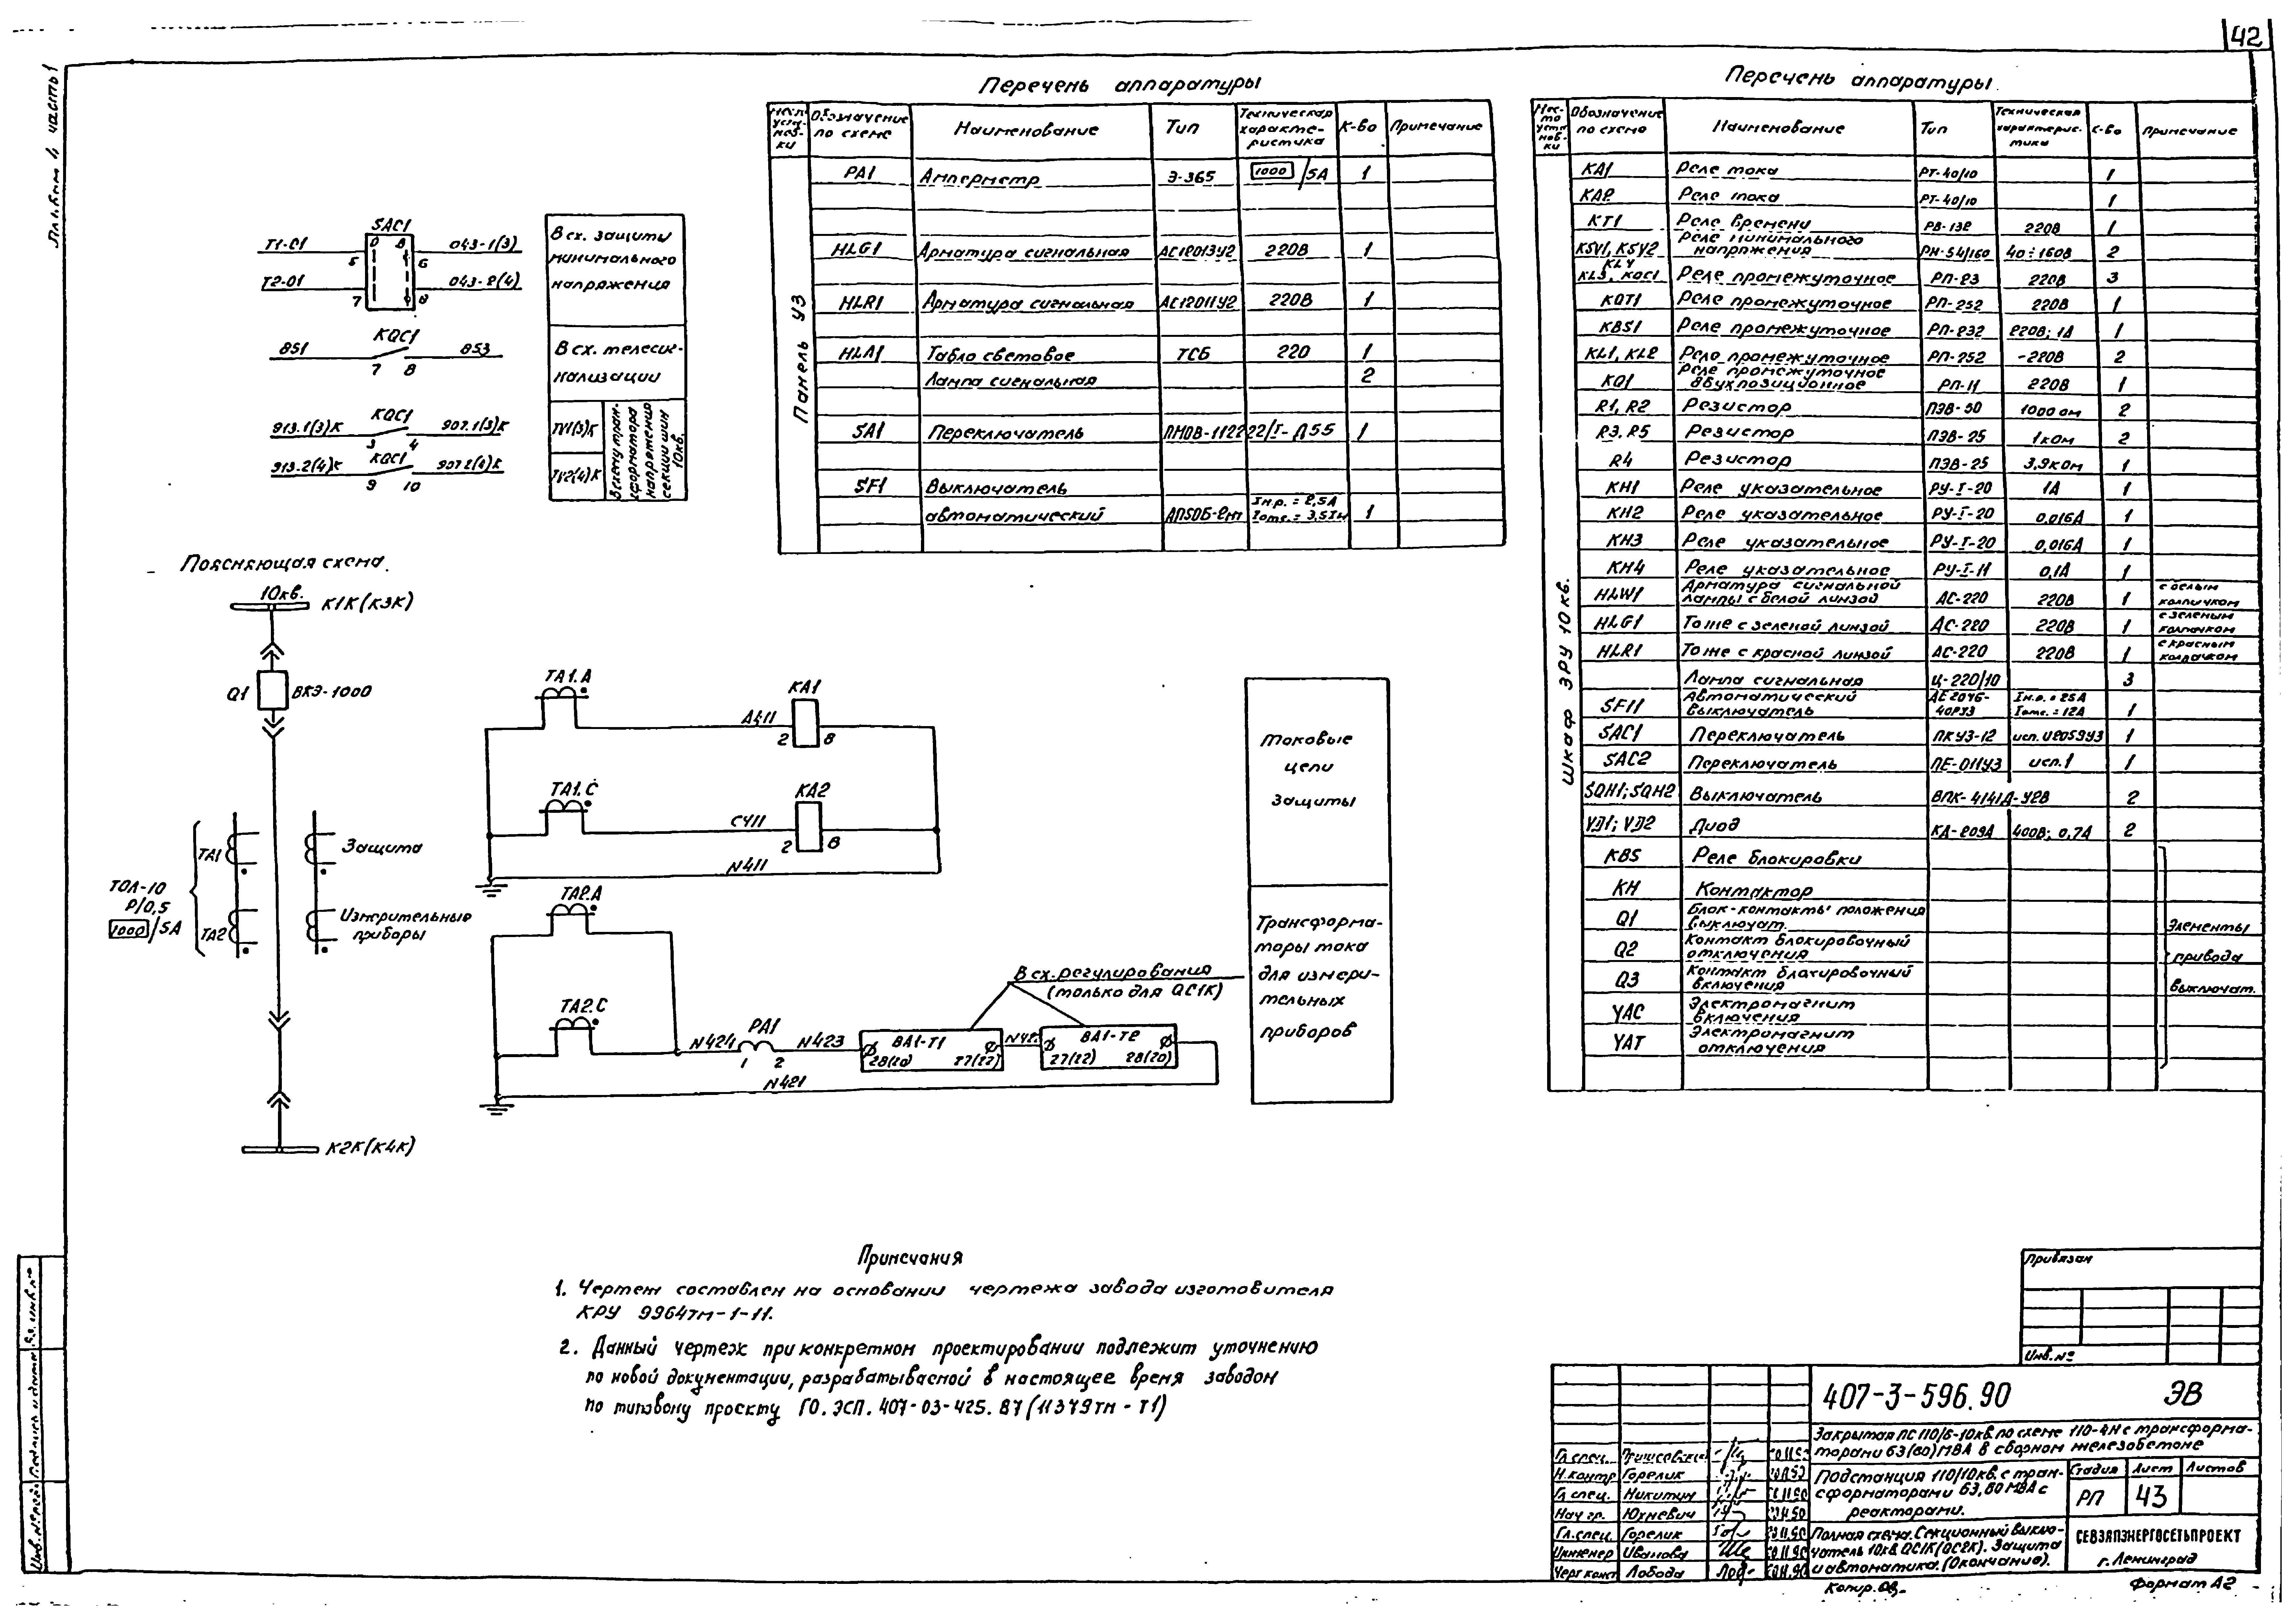 42
Перечень аппаратуры
Обозначение по схеме | Наименование | Тип | Техническая характеристика | К-во | Примечание
Панель У3
PA1 | Амперметр | Э-365 | 1000 /5А | 1
HLG1 | Арматура сигнальная | АС12013У2 | 220В | 1
HLR1 | Арматура сигнальная | АС12011У2 | 220В | 1
HLA1 | Табло световое | ТСБ | 220 | 1
Лампа сигнальная | 2
SA1 | Переключатель | ПМОВ-112222/I-Д55 | 1
SF1 | Выключатель
автоматический | АП50Б-2МТ | Iн.р. = 2,5А Iотс. = 3,5Iн | 1
Перечень аппаратуры
Обозначение по схеме | Наименование | Тип | Техническая характеристика | К-во | Примечание
Шкаф ЗРУ 10кв.
KA1 | Реле тока | РТ-40/10 | 1
KA2 | Реле тока | РТ-40/10 | 1
KT1 | Реле времени | РВ-132 | 220В | 1
KSV1, KSV2 | Реле минимального напряжения | РН-54/160 | 40÷160В | 2
KL4 KL3, KQC1 | Реле промежуточное | РП-23 | 220В | 3
KQT1 | Реле промежуточное | РП-252 | 220В | 1
KBS1 | Реле промежуточное | РП-232 | 220В; 1А | 1
KL1, KL2 | Реле промежуточное | РП-252 | -220В | 2
KQ1 | Реле промежуточное двухпозиционное | РП-11 | 220В | 1
R1, R2 | Резистор | ПЭВ-50 | 1000 ом | 2
R3, R5 | Резистор | ПЭВ-25 | 1ком | 2
R4 | Резистор | ПЭВ-25 | 3,9ком | 1
KH1 | Реле указательное | РУ-I-20 | 1А | 1
KH2 | Реле указательное | РУ-I-20 | 0,016А | 1
KH3 | Реле указательное | РУ-I-20 | 0,016А | 1
KH4 | Реле указательное | РУ-I-11 | 0,1А | 1
HLW1 | Арматура сигнальной лампы с белой линзой | АС-220 | 220В | 1 | с белым колпачком
HLG1 | То же с зеленой линзой | АС-220 | 220В | 1 | с зеленым колпачком
HLR1 | То же с красной линзой | АС-220 | 220В | 1 | с красным колпачком
Лампа сигнальная | Ц-220/10 | 3
SF11 | Автоматический выключатель | АЕ2046-40РУ3 | Iн.р. = 25А Iотс. = 12А | 1
SAC1 | Переключатель | ПКУ3-12 | исп. U2059У3 | 1
SAC2 | Переключатель | ПЕ-011У3 | исп.1 | 1
SQH1; SQH2 | Выключатель | ВПК-4141Д-У2В | 2
VD1; VD2 | Диод | КД-209А | 400В; 0,7А | 2
KBS | Реле блокировки
KH | Контактор
Q1 | Блок-контакты положения выключат.
Q2 | Контакт блокировочный отключения
Q3 | Контакт блокировочный включения
YAC | Электромагнит включения
YAT | Электромагнит отключения
Элементы
привода
выключат.
SAC1
T1-01 5 6 043-1(3)
T2-01 7 8 043-2(4)
В сх. защиты
минимального
напряжения
KQC1
851 7 8 853
В сх. телесиг-
нализации
KQC1
913.1(3)К 3 4 907.1(3)К
KQC1
913.2(4)К 9 10 907.2(4)К
TV1(3)К
TV2(4)К
В схему тран-
сформатора
напряжения
секции шин
10кв.
Поясняющая схема.
10кв. К1К(К3К)
Q1 ВКЭ-1000
TA1 Защита
ТОЛ-10
Р/0,5
1000 /5А
TA2 Измерительные
приборы
К2К(К4К)
TA1.A KA1
A411 2 8
TA1.C KA2
C411 2 8
N411
Токовые
цепи
защиты
TA2.A
TA2.C
В сх. регулирования
(только для QC1К)
N424 PA1 N423
1 2
BA1-T1 28(20) 27(22)
BA1-T2 27(22) 28(20)
N421
Трансформа-
торы тока
для измери-
тельных
приборов
Примечания
1. Чертеж составлен на основании чертежа завода изготовителя
КРУ 99647тм-1-11.
2. Данный чертеж при конкретном проектировании подлежит уточнению
по новой документации, разрабатываемой в настоящее время заводом
по типовому проекту ГО. ЭСП. 407-03-425. 87 (11379тм-Т1)
Привязан
Инв.№
407-3-596.90 ЭВ
Закрытая ПС 110/6-10кВ по схеме 110-4Н с трансформа-
торами 63(80)МВА в сборном железобетоне
Подстанция 110/10кв. с тран-
сформаторами 63,80 МВА с
реакторами.
Стадия Лист Листов
РП 43
Полная схема. Секционный выклю-
чатель 10кВ QC1К(QC2К). Защита
и автоматика. (Окончание).
СЕВЗАПЭНЕРГОСЕТЬПРОЕКТ
г. Ленинград
Гл.спец.
Н.контр Горелик
Гл.спец. Никитин
Нач гр. Юхневич
Гл.спец. Горелик
Инженер Иванова
Черт.конст Лобода
Копир.
Формат А2